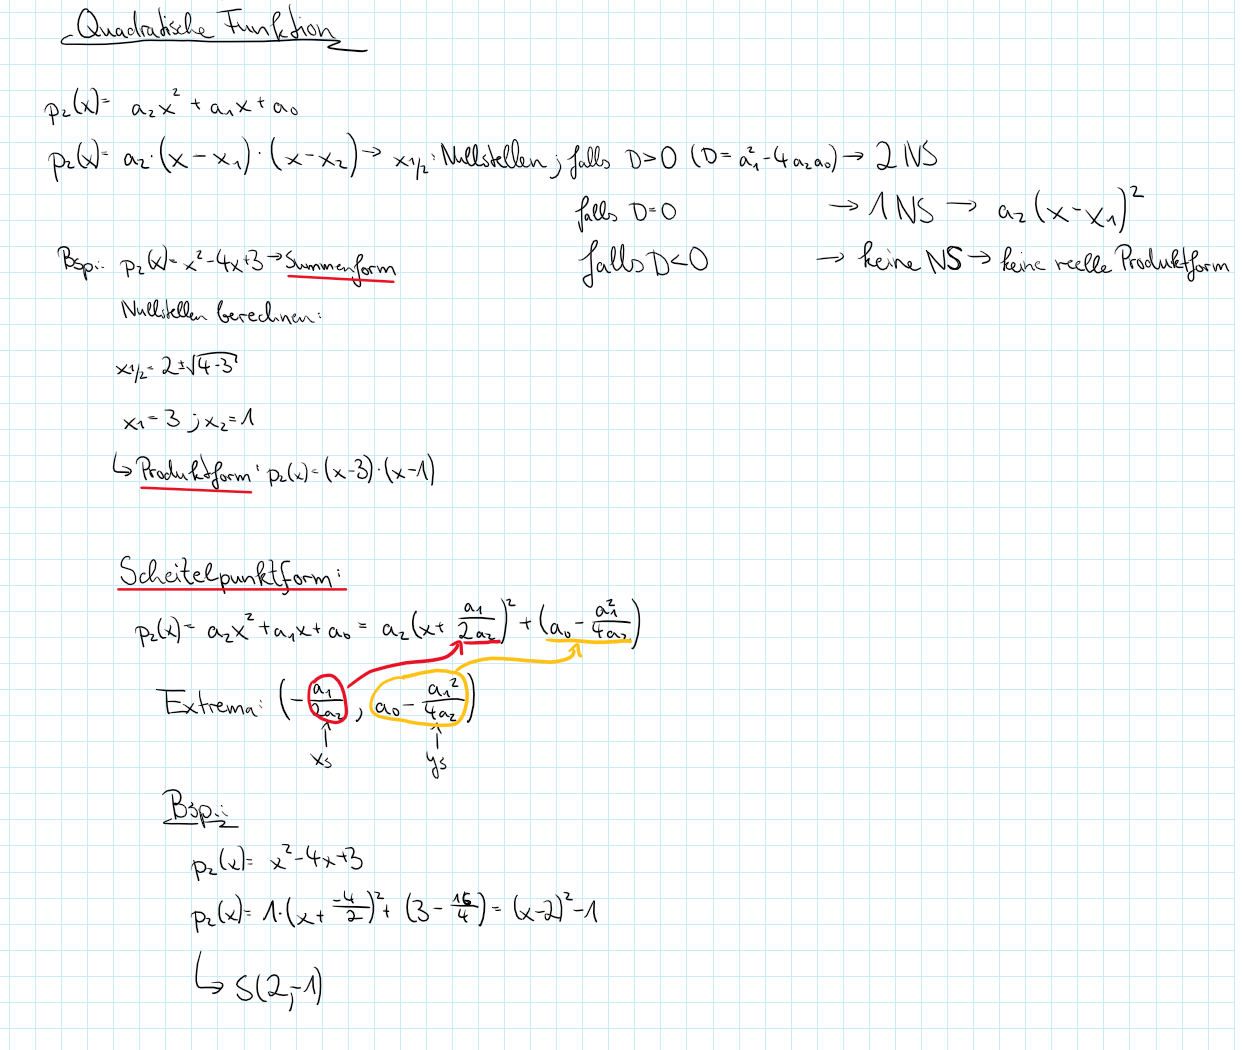 Quadratische Funktion
p₂(x)= a₂x² + a₁x + a₀
p₂(x)= a₂·(x-x₁)·(x-x₂) → x₁/₂: Nullstellen; falls D>0 (D=a₁²-4a₂a₀) → 2 NS
falls D=0 → 1 NS → a₂(x-x₁)²
falls D<0 → keine NS → keine reelle Produktform
Bsp.: p₂(x)=x²-4x+3 → Summenform
Nullstellen berechnen:
x₁/₂= 2±√(4-3)
x₁=3 ; x₂=1
↳ Produktform: p₂(x)=(x-3)·(x-1)
Scheitelpunktform:
p₂(x)= a₂x²+a₁x+a₀ = a₂(x+ a₁/2a₂)² + (a₀- a₁²/4a₂)
Extrema: (- a₁/2a₂ , a₀- a₁²/4a₂)
↑ ↑
xs ys
Bsp.:
p₂(x)= x²-4x+3
p₂(x)= 1·(x+ -4/2)²+ (3- 16/4) = (x-2)²-1
↳ S(2,-1)